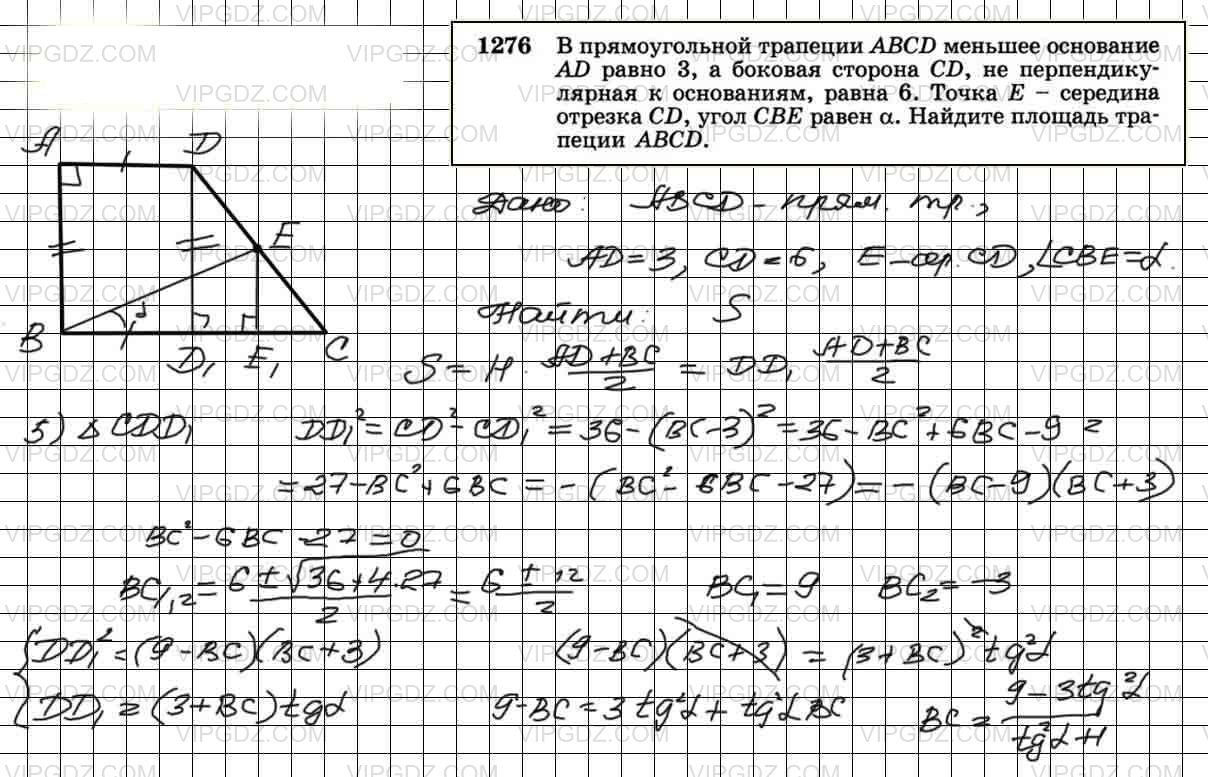 1276 В прямоугольной трапеции ABCD меньшее основание
AD равно 3, а боковая сторона CD, не перпендику-
лярная к основаниям, равна 6. Точка E – середина
отрезка CD, угол CBE равен α. Найдите площадь тра-
пеции ABCD.
A D
E
B D₁ E₁ C
α
Дано: ABCD – прям. тр.,
AD = 3, CD = 6, E – сер. CD, ∠CBE = α.
Найти: S
S = H · (AD + BC)/2 = DD₁ (AD + BC)/2
5) Δ CDD₁ DD₁² = CD² - CD₁² = 36 - (BC - 3)² = 36 - BC² + 6BC - 9 =
= 27 - BC² + 6BC = - (BC² - 6BC - 27) = - (BC - 9)(BC + 3)
BC² - 6BC - 27 = 0
BC₁,₂ = (6 ± √(36 + 4·27))/2 = (6 ± 12)/2 BC₁ = 9 BC₂ = -3
{ DD₁² = (9 - BC)(BC + 3) (9 - BC)(BC + 3) = (3 + BC)² tg²α
{ DD₁ = (3 + BC) tgα 9 - BC = 3 tg²α + tg²α BC BC = (9 - 3tg²α)/(tg²α + 1)
VIPGDZ.COM